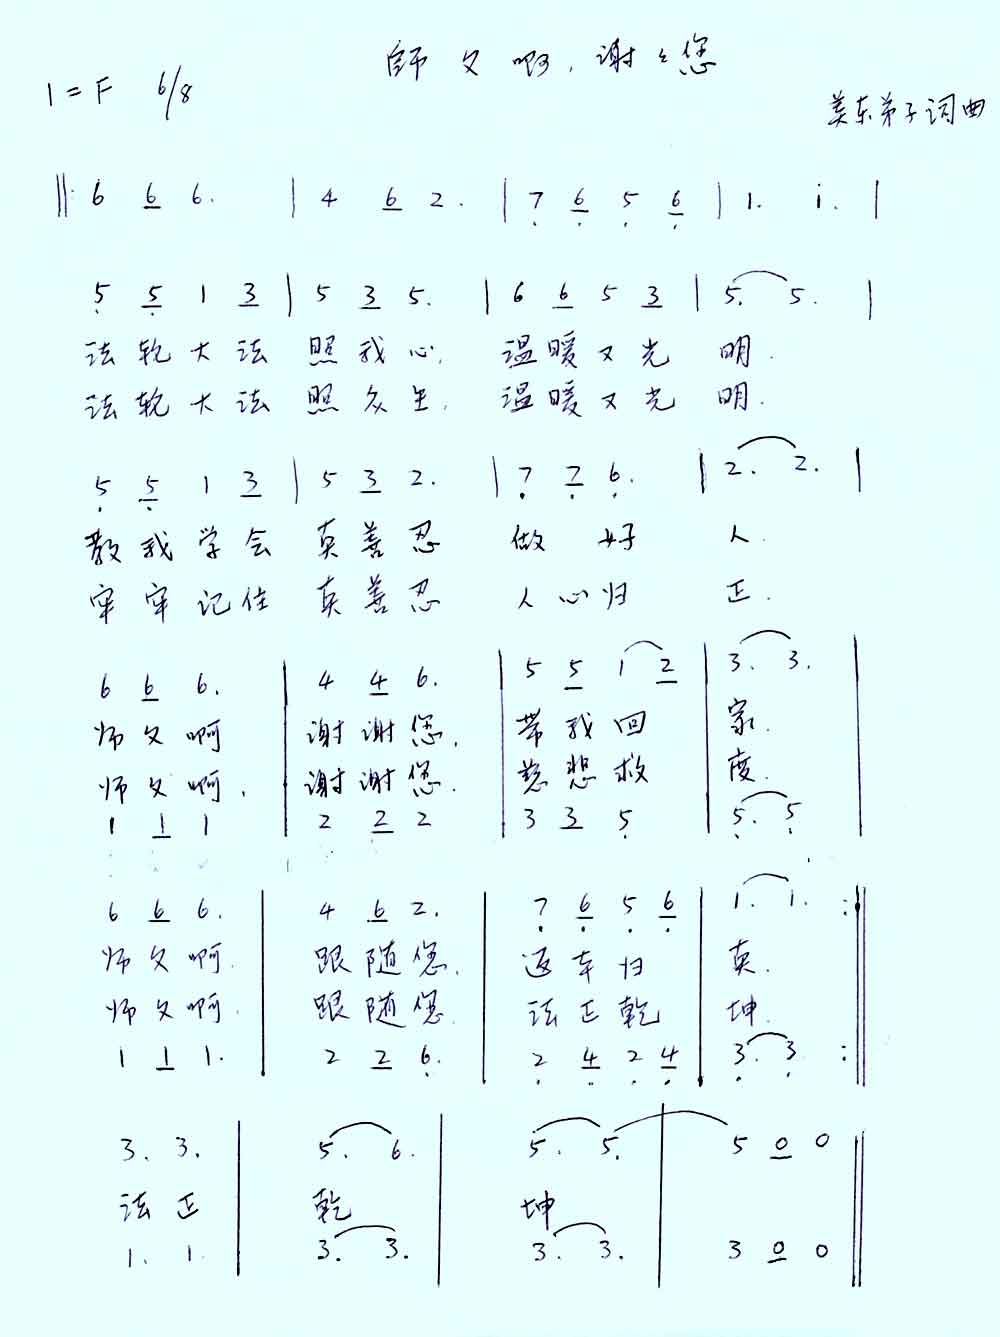 師父啊,谢々您
1=F 6/8
美东弟子词曲
‖: 6 6 6. | 4 6 2. | 7 6 5 6 | 1. i. |
5 5 1 3 | 5 3 5. | 6 6 5 3 | 5. 5. |
法轮大法 照我心, 温暖又光 明.
法轮大法 照众生, 温暖又光 明.
5 5 1 3 | 5 3 2. | 7 7 6. | 2. 2. |
教我学会 真善忍 做好 人.
牢牢记住 真善忍 人心归 正.
6 6 6. | 4 4 6. | 5 5 1 2 | 3. 3. |
师父啊 谢谢您, 带我回 家.
师父啊, 谢谢您. 慈悲救 度.
1 1 1 | 2 2 2 | 3 3 5 | 5. 5 |
6 6 6. | 4 6 2. | 7 6 5 6 | 1. 1. :‖
师父啊. 跟随您, 返本归 真.
师父啊. 跟随您. 法正乾 坤.
1 1 1. | 2 2 6. | 2 4 2 4 | 3. 3 :‖
3. 3. | 5. 6. | 5. 5. | 5 0 0 ‖
法正 乾 坤
1. 1. | 3. 3. | 3. 3. | 3 0 0 ‖